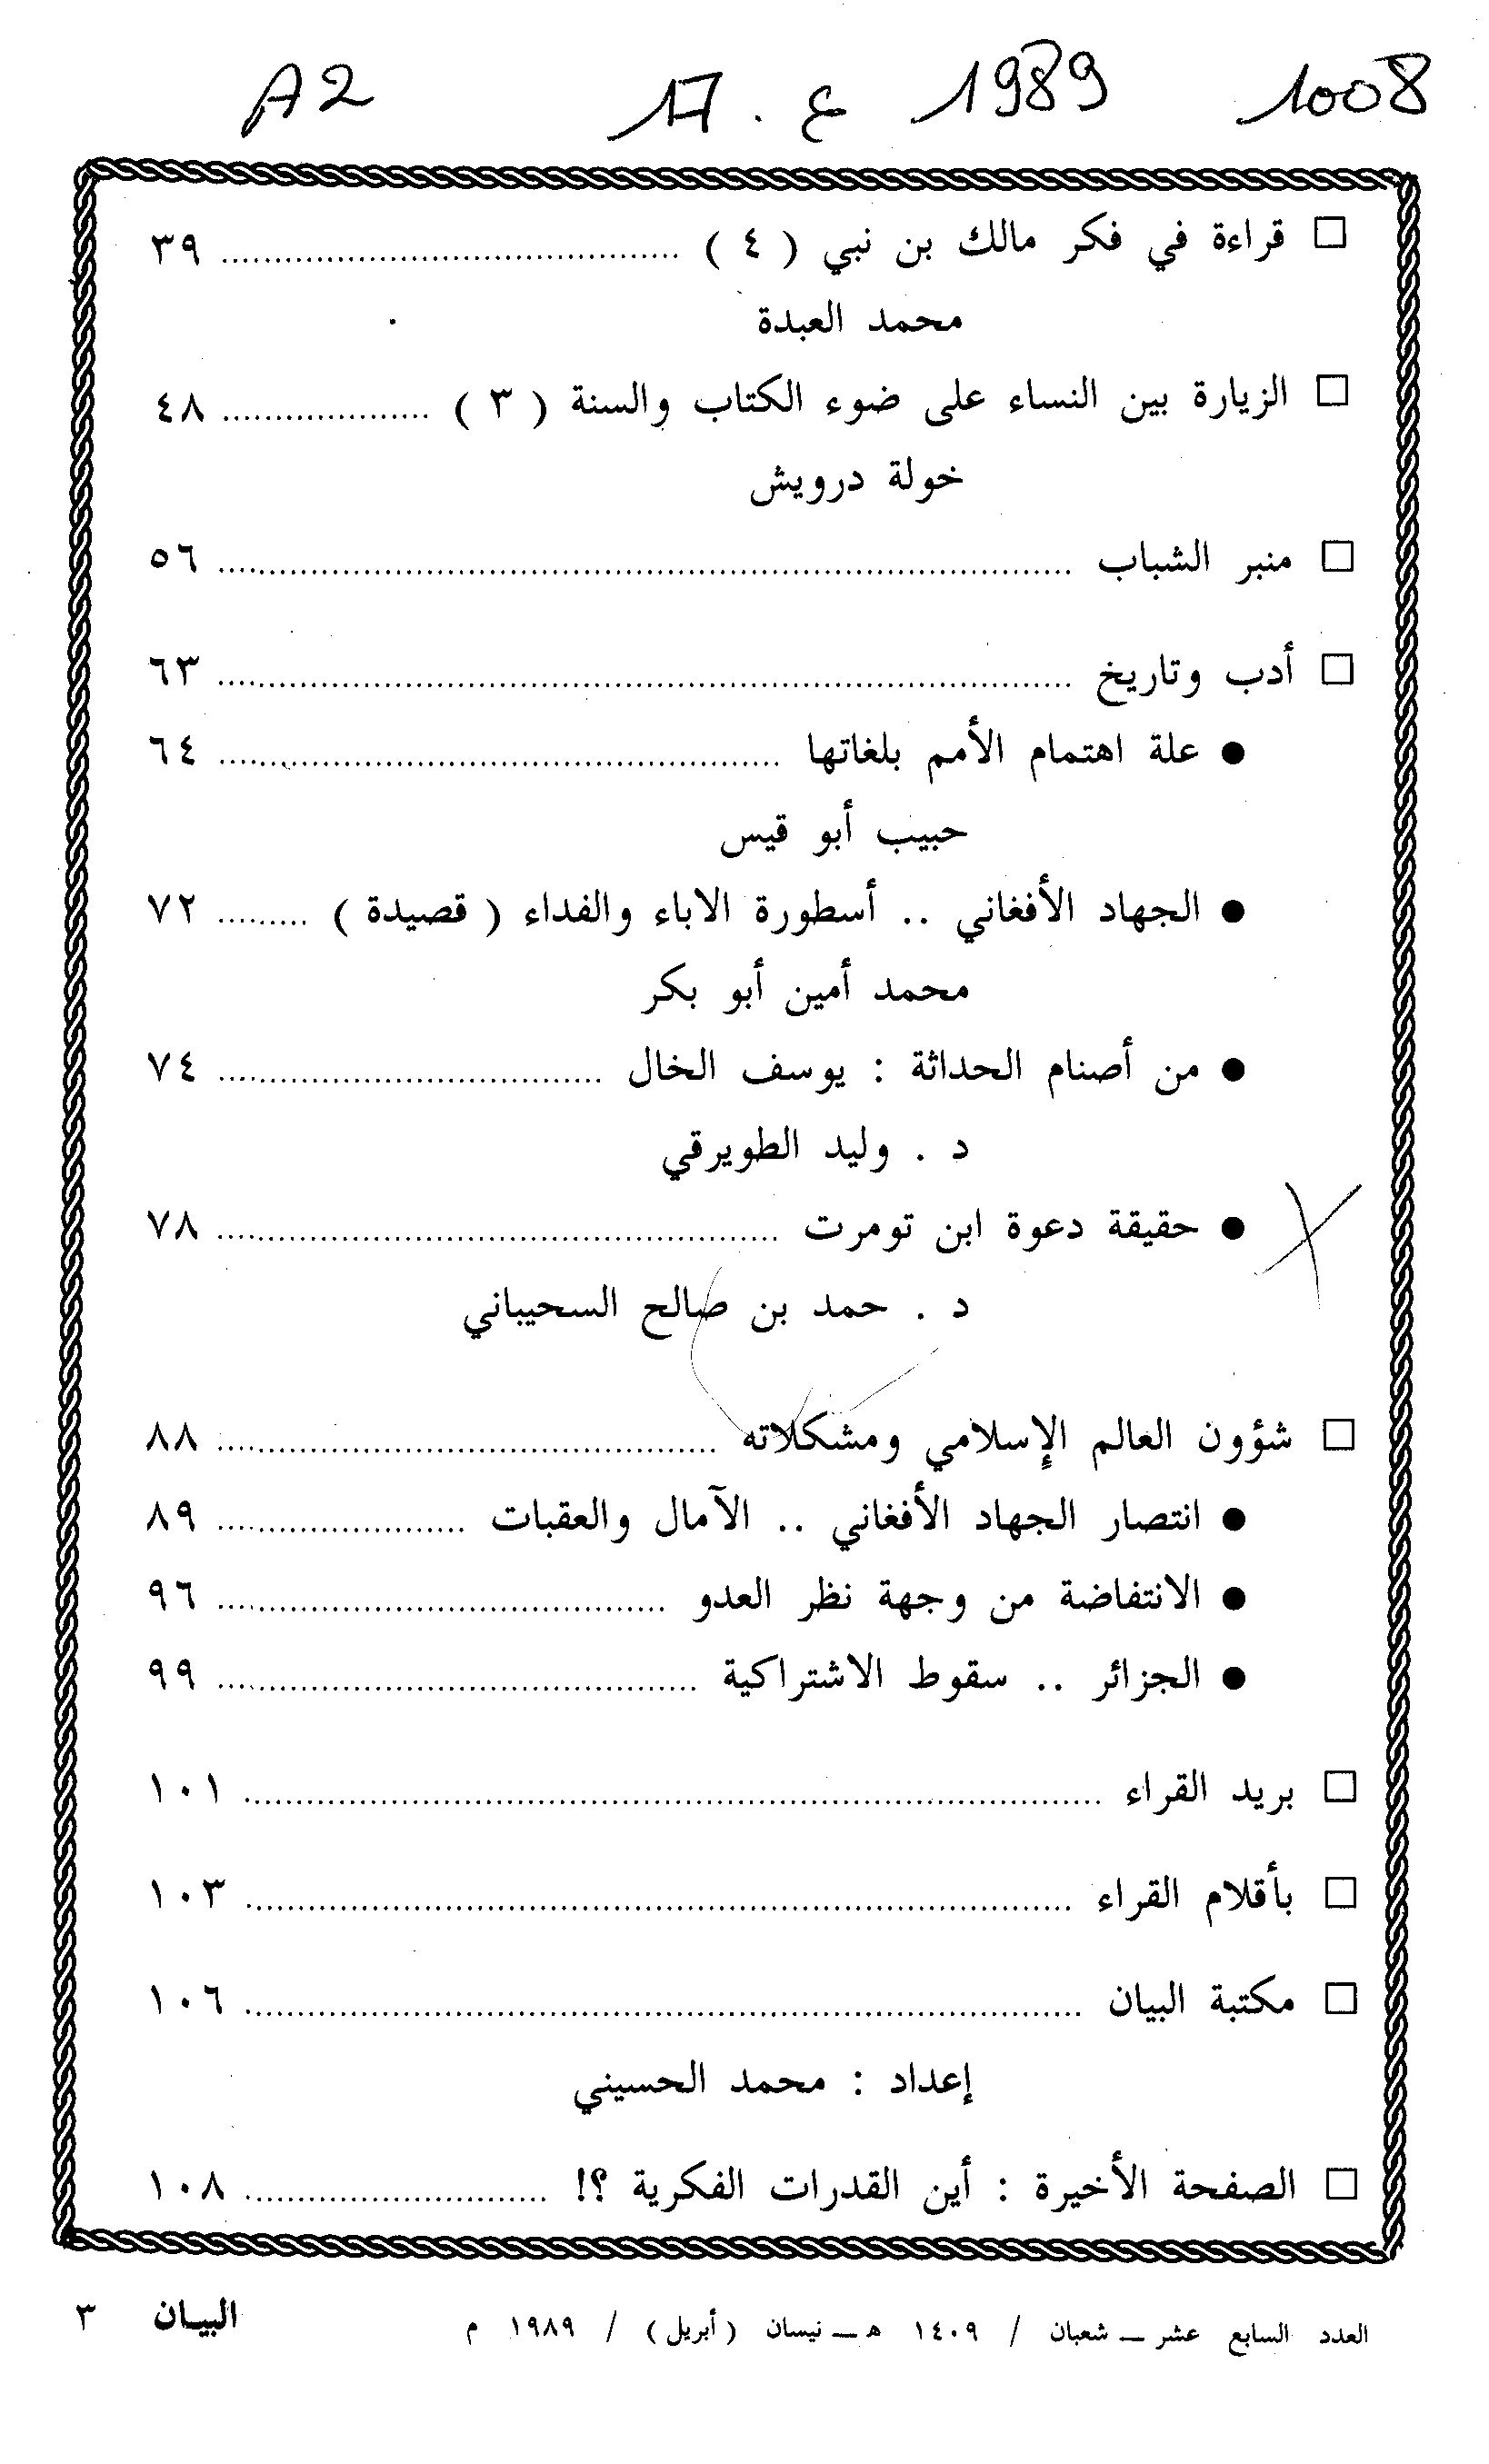 A2 17 . ع 1989 1008
□ قراءة في فكر مالك بن نبي ( ٤ ) ........ ٣٩
محمد العبدة
□ الزيارة بين النساء على ضوء الكتاب والسنة ( ٣ ) ........ ٤٨
خولة درويش
□ منبر الشباب ........ ٥٦
□ أدب وتاريخ ........ ٦٣
● علة اهتمام الأمم بلغاتها ........ ٦٤
حبيب أبو قيس
● الجهاد الأفغاني .. أسطورة الاباء والفداء ( قصيدة ) ........ ٧٢
محمد أمين أبو بكر
● من أصنام الحداثة : يوسف الخال ........ ٧٤
د . وليد الطويرقي
● حقيقة دعوة ابن تومرت ........ ٧٨
د . حمد بن صالح السحيباني
□ شؤون العالم الإسلامي ومشكلاته ........ ٨٨
● انتصار الجهاد الأفغاني .. الآمال والعقبات ........ ٨٩
● الانتفاضة من وجهة نظر العدو ........ ٩٦
● الجزائر .. سقوط الاشتراكية ........ ٩٩
□ بريد القراء ........ ١٠١
□ بأقلام القراء ........ ١٠٣
□ مكتبة البيان ........ ١٠٦
إعداد : محمد الحسيني
□ الصفحة الأخيرة : أين القدرات الفكرية ؟! ........ ١٠٨
العدد السابع عشر ــ شعبان / ١٤٠٩ هـ ــ نيسان ( أبريل ) / ١٩٨٩ م البيـان ٣